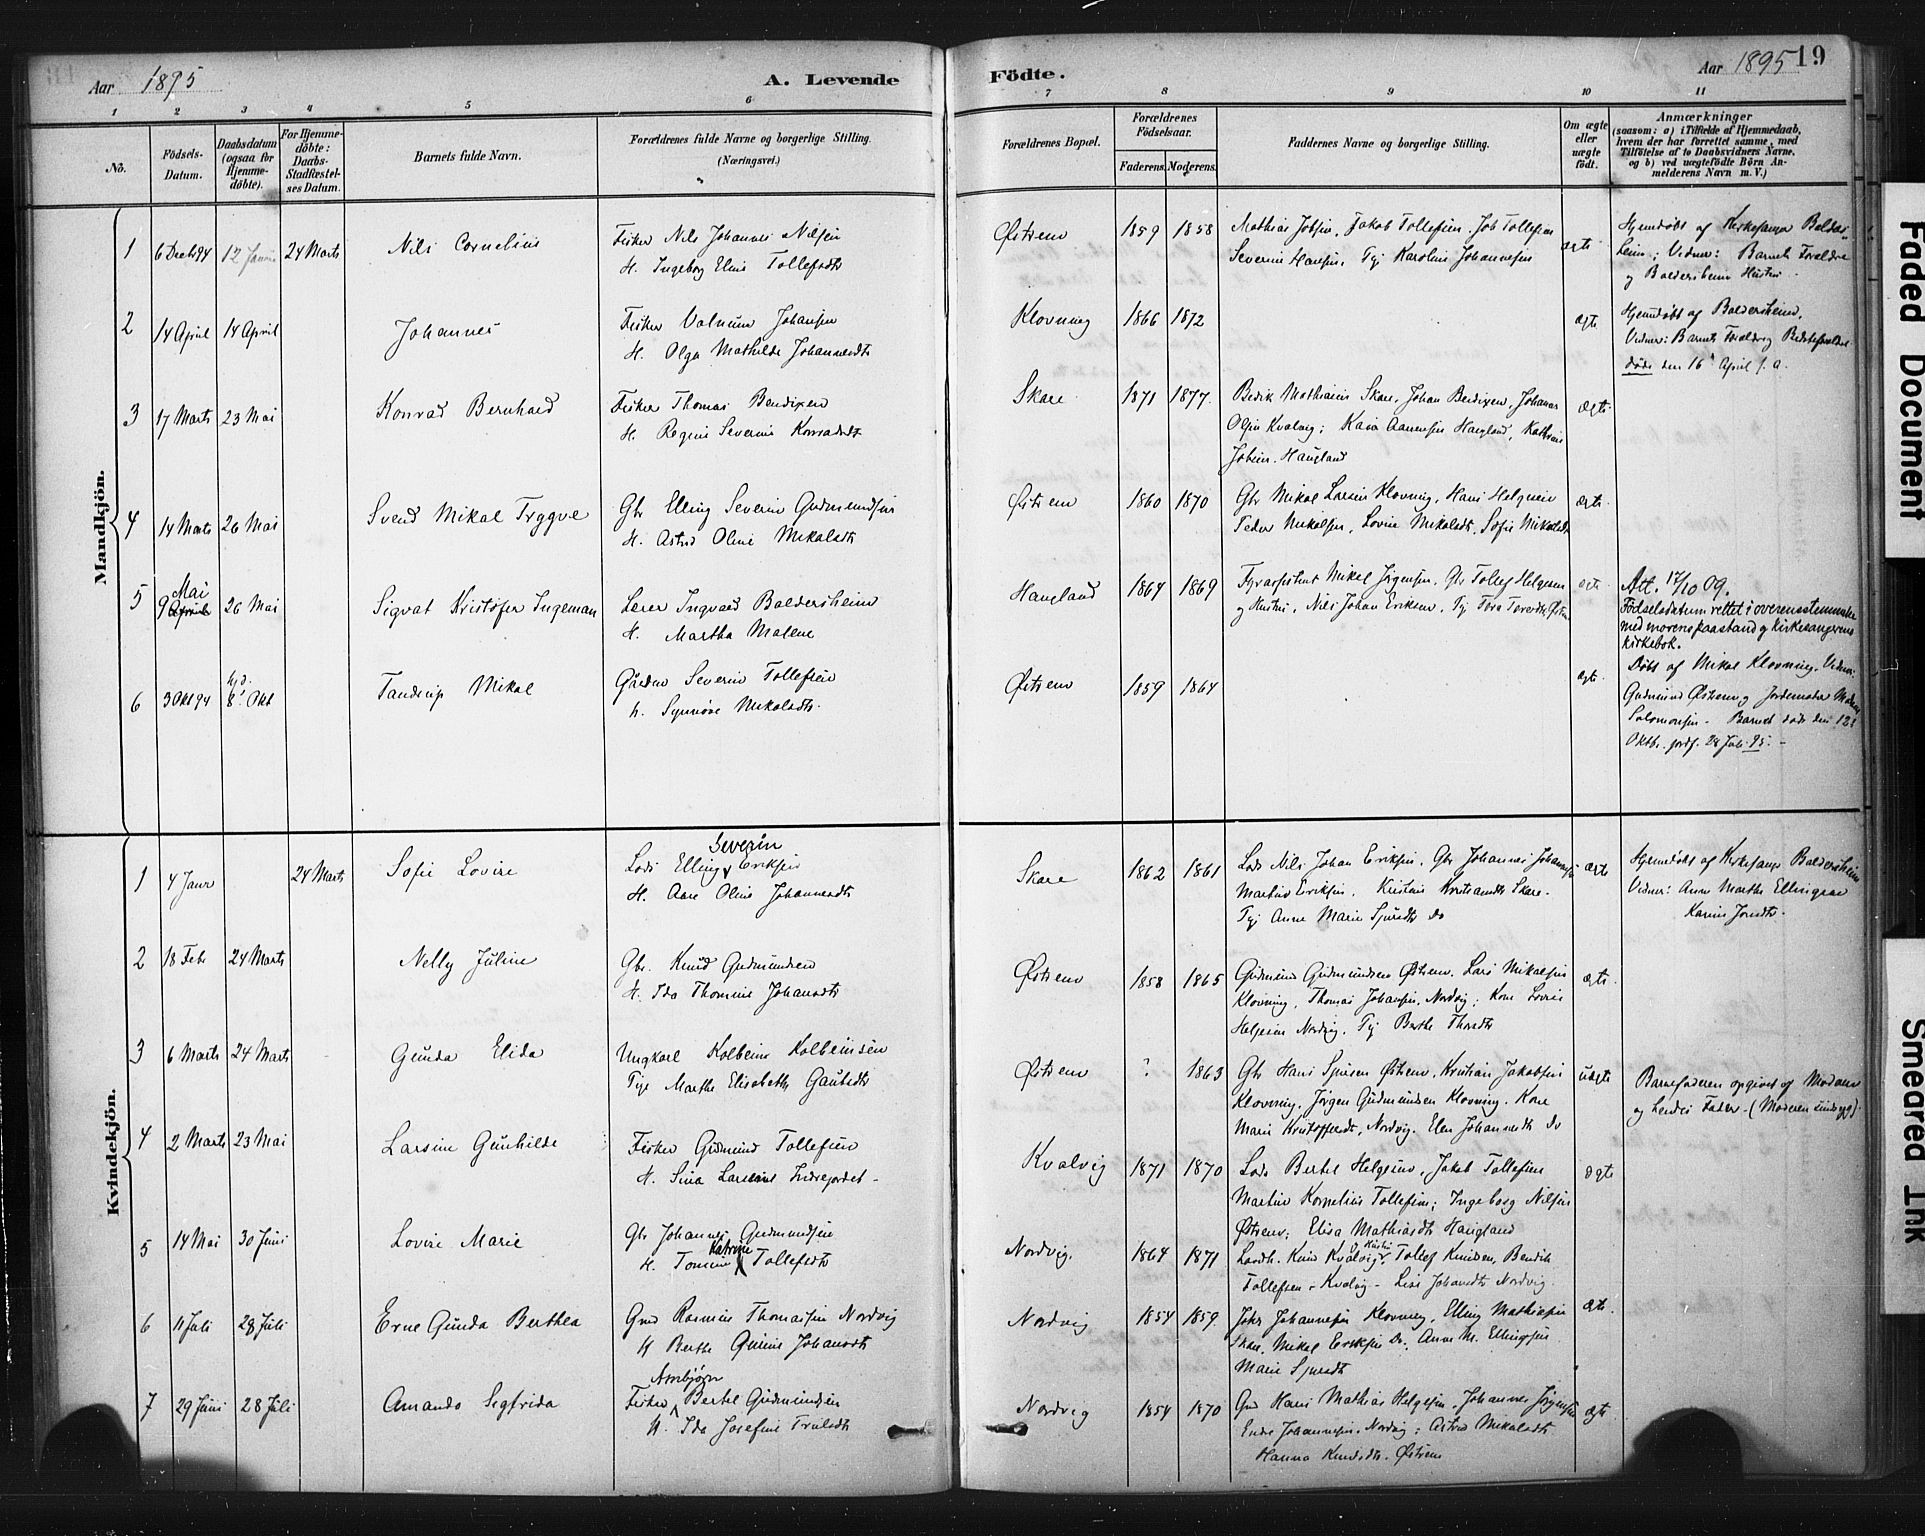 Aar 1895 A. Levende
1 2 3 4 5 6
No. Födsels-Datum. Daabsdatum (ogsaa for Hjemmedöbte). For Hjemmedöbte: Daabs-Stadfæstelses Datum. Barnets fulde Navn. Forældrenes fulde Navne og borgerlige Stilling. (Næringsvei.)
Mandkjön.
1 6 Decb 94 12 Januar 24 Marts Nils Cornelius Fisker Nils Johannes Nilsen
H. Ingeborg Eline Tollefsdtr
2 14 April 14 April Johannes Fisker Valnum Johansen
H. Olga Mathilde Johannesdtr
3 17 Marts 23 Mai Konrad Bernhard Fisker Thomas Bendixen
H. Regine Severine Konradsdt
4 14 Marts 26 Mai Svend Mikal Tryggve Gbr Elling Severin Gudmundsen
H. Astrid Oline Mikalsdtr
5 9 Mai April 26 Mai Sigvat Kristofer Ingeman Lærer Ingvard Baldersheim
H. Martha Malene
6 3 Okt 94 8 Okt Tandrup Mikal Gårdm Severin Tollefsen
H. Synnöve Mikalsdtr.
Kvindekjön.
1 4 Janr 24 Marts Sofie Lovise Lods Elling Severin Eriksen
H. Aase Oline Johannesdtr
2 18 Febr 24 Marts Nelly Juline Gbr. Knud Gudmundsen
H. Ida Thomine Johansdtr
3 6 Marts 24 Marts Gunda Elida Ungkarl Kolbein Kolbeinsen
Pige Marthe Elisabeth Gautsdtr
4 2 Marts 23 Mai Larsine Gunhilde Fisker Gudmund Tollefsen
H. Sina Larsine Indrejordet
5 14 Mai 30 Juni Lovise Marie Gbr Johannes Gudmundsen
H. Tomine Katrine Tollefsdtr
6 11 Juli 28 Juli Erne Gunda Berthea Gmd Rasmus Thomassen Nordvig
H Berthe Guline Johansdtr
7 29 Juni 28 Juli Amanda Segfrida Fisker Arnbjørn Bertel Gudmundsen
H. Ida Josefine Trulsdtr
Födte. Aar 1895 19
7 8 9 10 11
Forældrenes Bopæl. Forældrenes Födselsaar. Faderens. Moderens. Faddernes Navne og borgerlige Stilling. Om ægte eller uægte födt. Anmærkninger
(saasom: a) i Tilfælde af Hjemmedaab, hvem der har forrettet samme, med Tilföielse af to Daabsvidners Navne, og b) ved uægtefödte Börn Anmelderens Navn m. V.)
Østrem 1859 1858 Mathias Jobsen, Jakob Tollefsen, Job Tollefsen
Severine Hansen, Pige Karoline Johannesen ægte
Hjemdøbt af Kirkesanger Baldersheim; Vidner: Barnets Forældre
og Baldersheims Hustru
Klovning 1866 1872 ægte
Hjemdøbt af Baldersheim.
Vidner: Barnets Forældre og Bedsteforældre.
døde den 16 April s. a.
Skare 1871 1877. Bedik Mathias Skare, Johan Bendixen, Johannes
Olsen Kvalvig; Kaia Aanensen Haugland, Kathrine
Jobsen. Haugland ægte
Østrem 1860 1870 Gbr Mikal Larsen Klovning, Hans Helgesen
Peder Mikalsen, Lovise Mikalsdt, Sofie Mikalsdt ægte
Haugland 1864 1869 Fyrassistent Mikal Jørgensen, Gbr Tollef Helgesen
og Hustru, Nils Johan Eriksen, Pige ægte
Att. 17/10 09.
Födselsdatum rettet i overensstemmelse
med morens paastand og kirkesangerens
kirkebok.
Østrem 1859 1864 ægte
Döbt af Mikal Klovning. Vidner:
Gudmund Østrem og Jordemoder
Salomonsen. Barnet døde den 12
Oktbr. jordf. 28 Juli 95.
Skare 1862 1861 Lods Nils Johan Eriksen, Gbr Johannes Johannesen
Martin Eriksen, Kristine Kristiansdt Skare.
Pige Anne Marie Sjursdtr Do ægte
Hjemdøbt af Kirkesanger Baldersheim
Vidner: Anne Marthe Ellingsen
Karine Jonsdtr.
Østrem 1858 1865 Gudmund Gudmundsen Østrem. Lars Mikalsen
Klovning, Thomas Johansen, Nordvig; Kone Lovise
Helgesen Nordvig. Pige Berthe Thorsdtr ægte
Østrem ? 1863 Gbr Hans Sjursen Østrem, Kristian Jakobsen
Klovning, Jørgen Gudmundsen Klovning. Kone
Marie Kristoffersdt, Nordvig. Elen Johannesdtr Do uægte
Barnefaderen opgivet af Moderen
og hendes Fader. (Moderen sindssyg).
Kvalvig 1871 1870 Lods Bertel Helgesen, Jakob Tollefsen
Martin Kornelius Tollefsen; Ingeborg Nilsen
Østrem; Elisa Mathiasdtr Haugland ægte
Nordvig. 1864 1871 Landh. Knud Kvalvig, Hustru Tollef Knudsen, Bendik
Tollefsen, Kvalvig. Lise Johansdtr Nordvig.
Nordvig 1854 1859. Johs Johannesen Klovning, Elling Mathiesen
Skare. Mikal Eriksen Do; Anne M. Ellingsen
Marie Sjursdt ægte
Nordvig 1854 1870 Gmd Hans Mathias Helgesen, Johannes Jörgensen
Endre Johannesen, Nordvig; Astrid Mikalsdtr
Hanna Knudsdtr. Østrem ægte
Faded Document
Smeared Ink